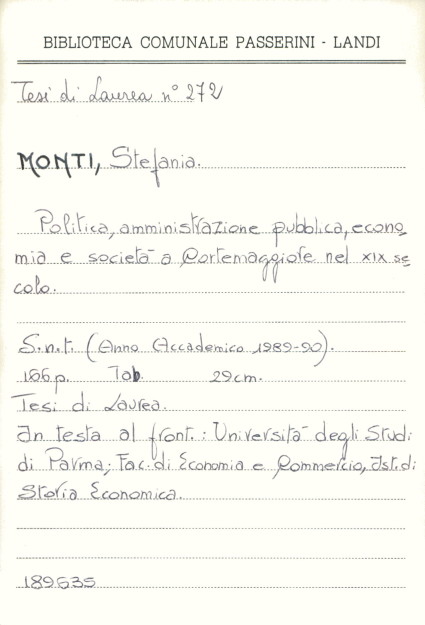 BIBLIOTECA COMUNALE PASSERINI - LANDI
Tesi di Laurea n° 272
MONTI, Stefania.
Politica, amministrazione pubblica, econo
mia e società a Cortemaggiore nel XIX se
colo.
S.n.t. (Anno Accademico 1989-90).
166 p. Tab. 29 cm.
Tesi di Laurea.
In testa al front.: Università degli Studi
di Parma; Fac. di Economia e Commercio, Ist. di
Storia Economica.
189635